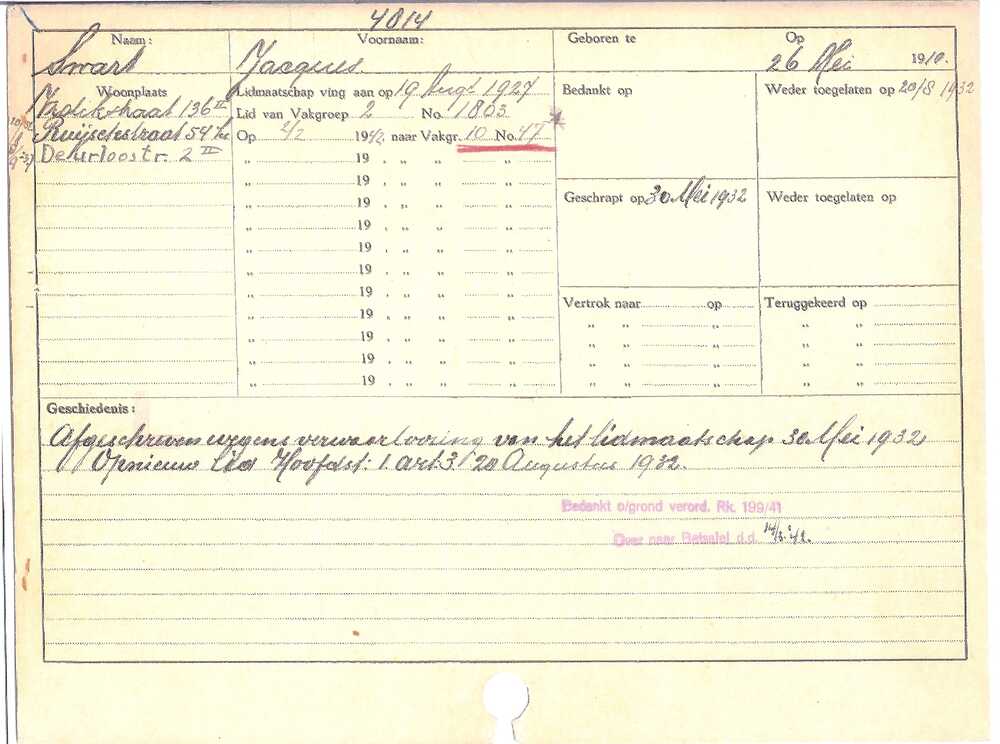 4014
Naam: Voornaam: Geboren te Op
Swart Jacques. 26 Mei 1910.
Woonplaats Lidmaatschap ving aan op 19 Augt 1927 Bedankt op Weder toegelaten op 20/8 1932
136 II Lid van Vakgroep 2 No. 1803
Ruijschstraat 54 Op 2/2 1942, naar Vakgr. 10 No. 47
Deurloostr. 2 III „ 19 , „ „ „
„ 19 , „ „ „
Geschrapt op 30 Mei 1932 Weder toegelaten op
„ 19 , „ „ „
„ 19 , „ „ „
„ 19 , „ „ „
„ 19 , „ „ „
„ 19 , „ „ „
Vertrok naar op Teruggekeerd op
„ 19 , „ „ „ „ „ „ „ „
„ 19 , „ „ „ „ „ „ „ „
„ 19 , „ „ „ „ „ „ „ „
„ 19 , „ „ „ „ „ „ „ „
Geschiedenis:
Afgeschreven wegens verwaarloozing van het lidmaatschap 30 Mei 1932
Opnieuw lid Hoofdst: 1. art: 3. 20 Augustus 1932.
Bedankt o/grond verord. Rk. 199/41
Over naar Betsalel d.d.